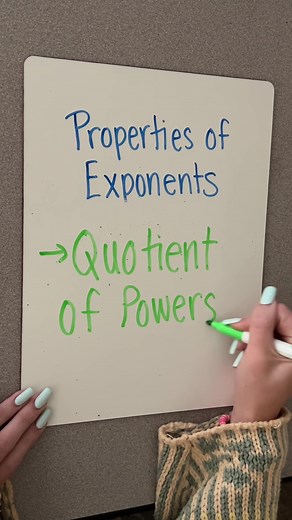 Properties of
Exponents
→Quotient
of Powers